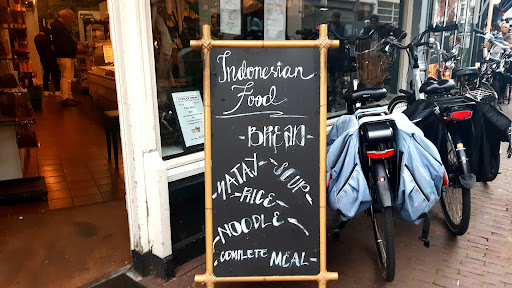 Indonesian
Food
- BREAD -
- SATAY - SOUP -
- RICE -
- NOODLE -
- COMPLETE MEAL -